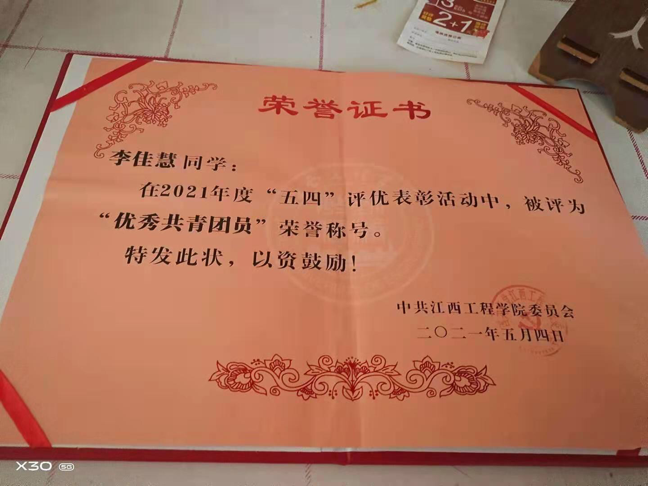 3
2+1
荣誉证书
李佳慧同学：
在2021年度“五四”评优表彰活动中，被评为
“优秀共青团员”荣誉称号。
特发此状，以资鼓励！
中共江西工程学院委员会
二〇二一年五月四日
X30 5G